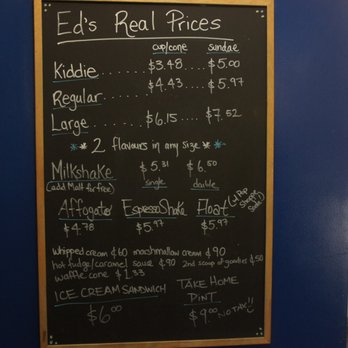 Ed's Real Prices
cup/cone sundae
Kiddie ..... $3.48 .... $5.00
Regular ..... $4.43 .... $5.97
Large ..... $6.15 .... $7.52
** 2 flavours in any size **
Milkshake $5.31 $6.50
(add Malt for free) single double
Affogato EspressoShake Float
$4.78 $5.97 $5.97
whipped cream $60 marshmallow cream $90
hot fudge/caramel sause $90 2nd scoop of goodies $50
waffle cone $1.33
ICE CREAM SANDWICH TAKE HOME
PINT
$6.00 $9.00 NO TAX!!